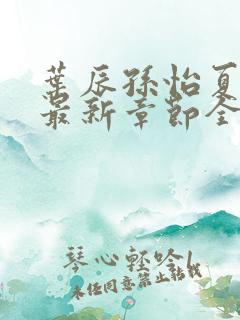 叶辰孙怡夏
最新章节全
琴心轻吟/
未经同意禁止转载